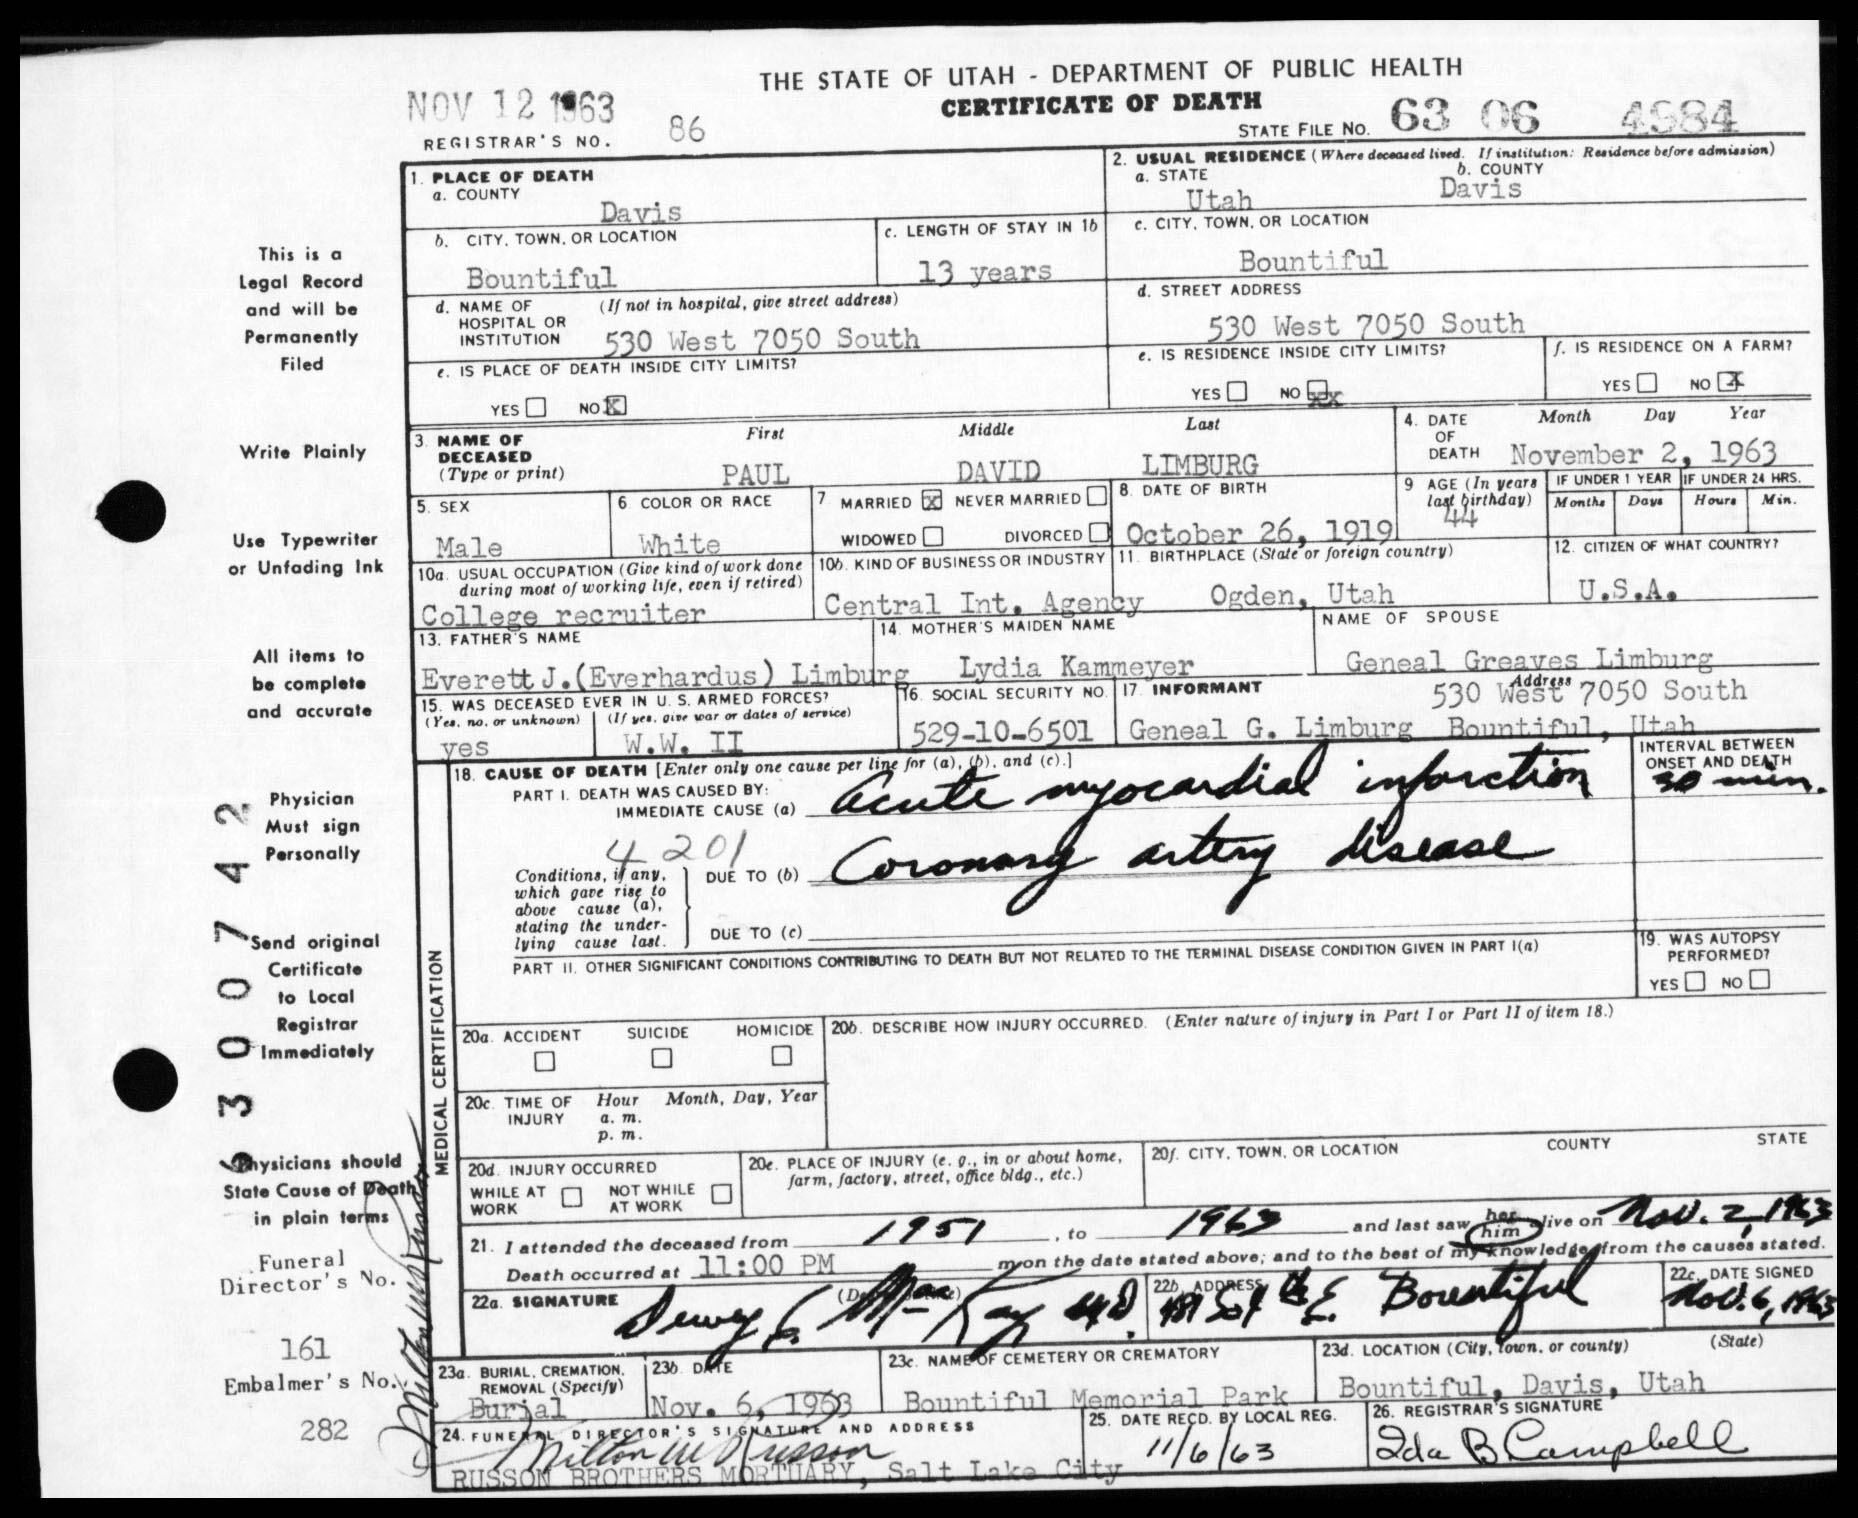 THE STATE OF UTAH - DEPARTMENT OF PUBLIC HEALTH
CERTIFICATE OF DEATH
NOV 12 1963
REGISTRAR'S NO. 86
STATE FILE NO. 63 06 4584
1. PLACE OF DEATH
a. COUNTY
Davis
2. USUAL RESIDENCE (Where deceased lived. If institution: Residence before admission)
a. STATE b. COUNTY
Utah Davis
b. CITY, TOWN, OR LOCATION
Bountiful
c. LENGTH OF STAY IN 1b
13 years
c. CITY, TOWN, OR LOCATION
Bountiful
d. NAME OF HOSPITAL OR INSTITUTION (If not in hospital, give street address)
530 West 7050 South
d. STREET ADDRESS
530 West 7050 South
e. IS PLACE OF DEATH INSIDE CITY LIMITS?
YES NO X
e. IS RESIDENCE INSIDE CITY LIMITS?
YES NO XX
f. IS RESIDENCE ON A FARM?
YES NO X
3. NAME OF DECEASED (Type or print)
First Middle Last
PAUL DAVID LIMBURG
4. DATE OF DEATH Month Day Year
November 2, 1963
5. SEX
Male
6 COLOR OR RACE
White
7 MARRIED X NEVER MARRIED
WIDOWED DIVORCED
8. DATE OF BIRTH
October 26, 1919
9 AGE (In years last birthday)
44
IF UNDER 1 YEAR IF UNDER 24 HRS.
Months Days Hours Min.
10a. USUAL OCCUPATION (Give kind of work done during most of working life, even if retired)
College recruiter
10b. KIND OF BUSINESS OR INDUSTRY
Central Int. Agency
11. BIRTHPLACE (State or foreign country)
Ogden, Utah
12. CITIZEN OF WHAT COUNTRY?
U.S.A.
13. FATHER'S NAME
Everett J.(Everhardus) Limburg
14. MOTHER'S MAIDEN NAME
Lydia Kammeyer
NAME OF SPOUSE
Geneal Greaves Limburg
15. WAS DECEASED EVER IN U. S. ARMED FORCES?
(Yes, no, or unknown) (If yes, give war or dates of service)
yes W.W. II
16. SOCIAL SECURITY NO.
529-10-6501
17. INFORMANT Address
530 West 7050 South
Geneal G. Limburg Bountiful, Utah
MEDICAL CERTIFICATION
18. CAUSE OF DEATH [Enter only one cause per line for (a), (b), and (c).]
INTERVAL BETWEEN ONSET AND DEATH
PART I. DEATH WAS CAUSED BY:
IMMEDIATE CAUSE (a) Acute myocardial infarction 30 min.
4201
Conditions, if any, which gave rise to above cause (a), stating the underlying cause last.
DUE TO (b) Coronary artery disease
DUE TO (c)
PART II. OTHER SIGNIFICANT CONDITIONS CONTRIBUTING TO DEATH BUT NOT RELATED TO THE TERMINAL DISEASE CONDITION GIVEN IN PART I(a)
19. WAS AUTOPSY PERFORMED?
YES NO
20a. ACCIDENT SUICIDE HOMICIDE
20b. DESCRIBE HOW INJURY OCCURRED. (Enter nature of injury in Part I or Part II of item 18.)
20c. TIME OF INJURY Hour Month, Day, Year
a. m.
p. m.
20d. INJURY OCCURRED
WHILE AT WORK NOT WHILE AT WORK
20e. PLACE OF INJURY (e. g., in or about home, farm, factory, street, office bldg., etc.)
20f. CITY, TOWN, OR LOCATION COUNTY STATE
21. I attended the deceased from 1951, to 1963 and last saw her him alive on Nov. 2, 1963
Death occurred at 11:00 PM m on the date stated above; and to the best of my knowledge, from the causes stated.
22a. SIGNATURE
Dewey C. MacKay MD.
22b. ADDRESS
E. Bountiful
22c. DATE SIGNED
Nov. 6, 1963
23a. BURIAL, CREMATION, REMOVAL (Specify)
Burial
23b. DATE
Nov. 6, 1963
23c. NAME OF CEMETERY OR CREMATORY
Bountiful Memorial Park
23d. LOCATION (City, town, or county) (State)
Bountiful, Davis, Utah
24. FUNERAL DIRECTOR'S SIGNATURE AND ADDRESS
Milton W Russon
RUSSON BROTHERS MORTUARY, Salt Lake City
25. DATE RECD. BY LOCAL REG.
11/6/63
26. REGISTRAR'S SIGNATURE
Ida B Campbell
This is a
Legal Record
and will be
Permanently
Filed
Write Plainly
Use Typewriter
or Unfading Ink
All items to
be complete
and accurate
Physician
Must sign
Personally
Send original
Certificate
to Local
Registrar
Immediately
Physicians should
State Cause of Death
in plain terms
Funeral
Director's No.
161
Embalmer's No.
282
6300742
Milton W Russon